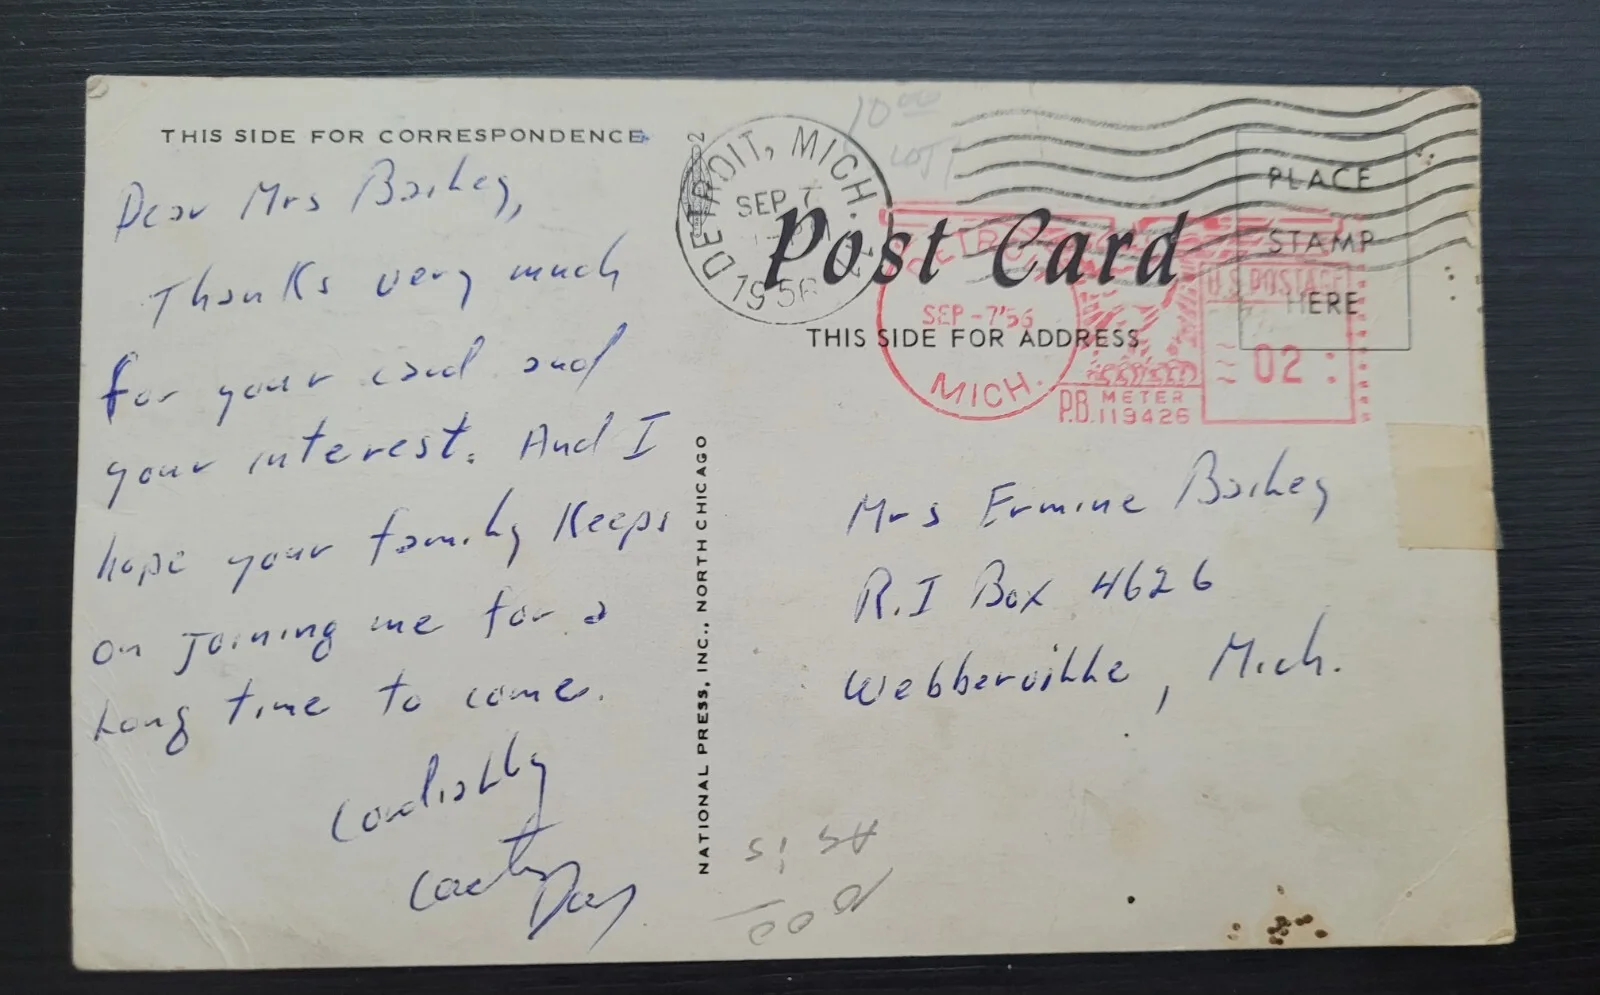 THIS SIDE FOR CORRESPONDENCE
Dear Mrs Barkey,
Thanks very much
for your card and
your interest. And I
hope your family keeps
on joining me for a
long time to come.
Cordially
Day
NATIONAL PRESS, INC., NORTH CHICAGO
DETROIT, MICH.
SEP 7
1956
10 00
LOT
Post Card
THIS SIDE FOR ADDRESS
PLACE
STAMP
HERE
SEP -7'56
MICH.
U.S. POSTAGE
02
P.B. METER
119426
Mrs Ermine Barkey
R.I Box 4626
Webberville, Mich.
AS IS